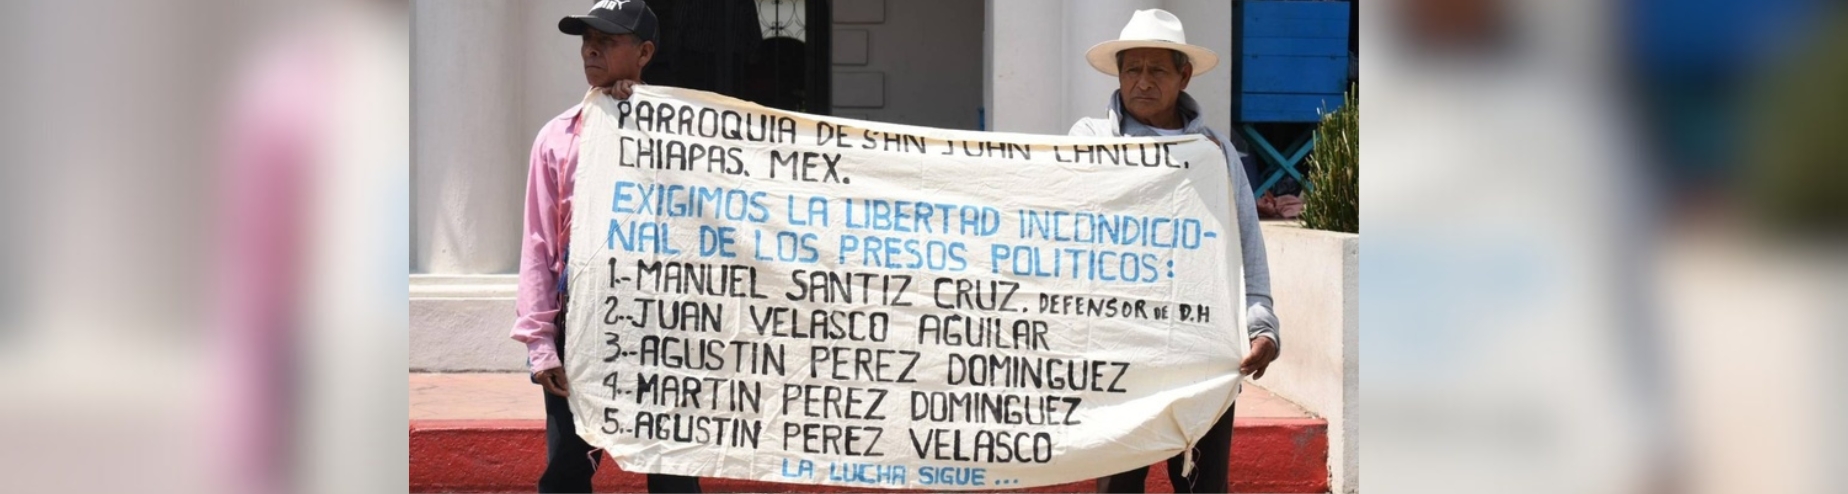 PARROQUIA DE SAN JUAN CANCUC,
CHIAPAS. MEX.
EXIGIMOS LA LIBERTAD INCONDICIO-
NAL DE LOS PRESOS POLITICOS:
1.-MANUEL SANTIZ CRUZ. DEFENSOR DE D.H
2.-JUAN VELASCO AGUILAR
3.-AGUSTIN PEREZ DOMINGUEZ
4.-MARTIN PEREZ DOMINGUEZ
5.-AGUSTIN PEREZ VELASCO
LA LUCHA SIGUE...